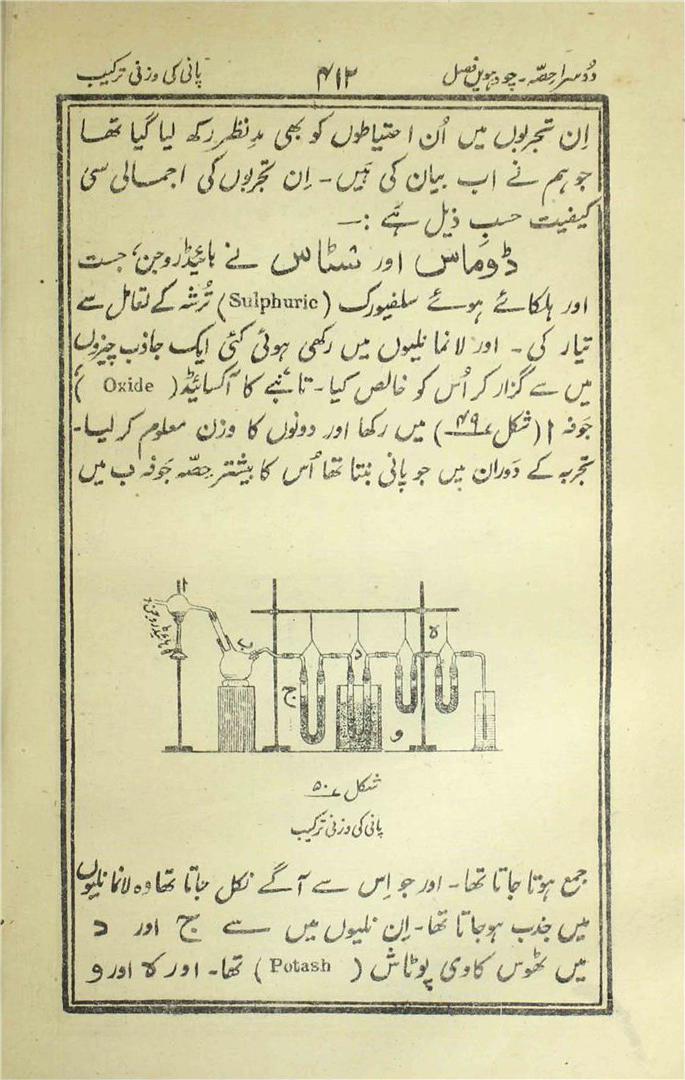 دوسرا حصّہ۔ چودہویں فصل ۴۱۲ پانی کی وزنی ترکیب
اِن تجربوں میں اُن احتیاطوں کو بھی مدِنظر رکھ لیا گیا تھا
جو ہم نے اب بیان کی ہَیں۔ اِن تجربوں کی اجمالی سی
کیفیت حسبِ ذیل ہَے :—
ڈوماس اور سٹاس نے ہائیڈروجن، جست
اور ہلکائے ہوئے سلفیورک (Sulphuric) تُرشہ کے تعامل سے
تیار کی۔ اور لانما نلیوں میں رکھی ہوئی کئی ایک جاذب چیزوں
میں سے گزار کر اُس کو خالص کیا۔ تانبے کا آکسائیڈ (Oxide)
جَوفہ ا (شکل ۴۹) میں رکھا اور دونوں کا وزن معلوم کر لیا۔
تجربہ کے دَوران میں جو پانی بنتا تھا اُس کا بیشتر حِصّہ جَوفہ ب میں
ا
ہائیڈروجن
ب
ج
د
ہ
و
شکل ۵۰
پانی کی وزنی ترکیب
جمع ہوتا جاتا تھا۔ اور جو اِس سے آگے نکل جاتا تھا وہ لانما نلیوں
میں جذب ہوجاتا تھا۔ اِن نلیوں میں سے ج اور د
میں ٹھوس کاوی پوٹاش (Potash) تھا۔ اور ہ اور و